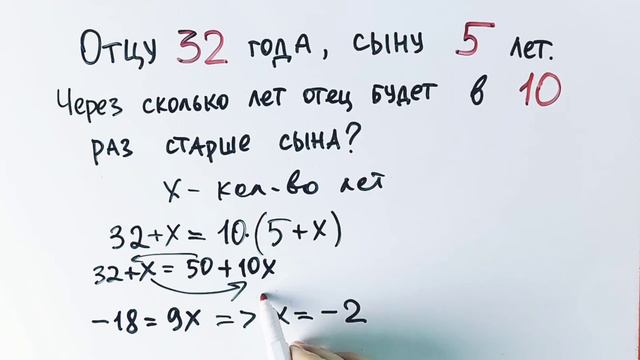 Отцу 32 года, сыну 5 лет.
Через сколько лет отец будет в 10
раз старше сына?
x - кол-во лет
32+x = 10·(5+x)
32+x = 50+10x
-18 = 9x => x = -2